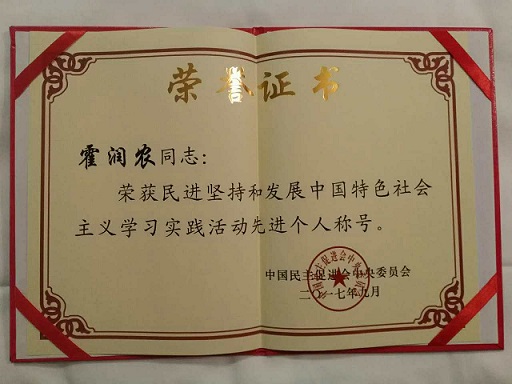 荣誉证书
霍润农同志：
荣获民进坚持和发展中国特色社会
主义学习实践活动先进个人称号。
中国民主促进会中央委员会
二〇一七年九月